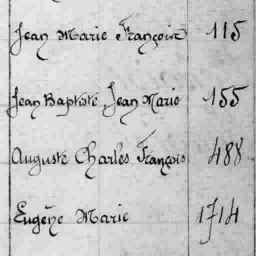 Jean Marie François 115
Jean Baptiste, Jean Marie 155
Auguste Charles François 488
Eugène Marie 1714